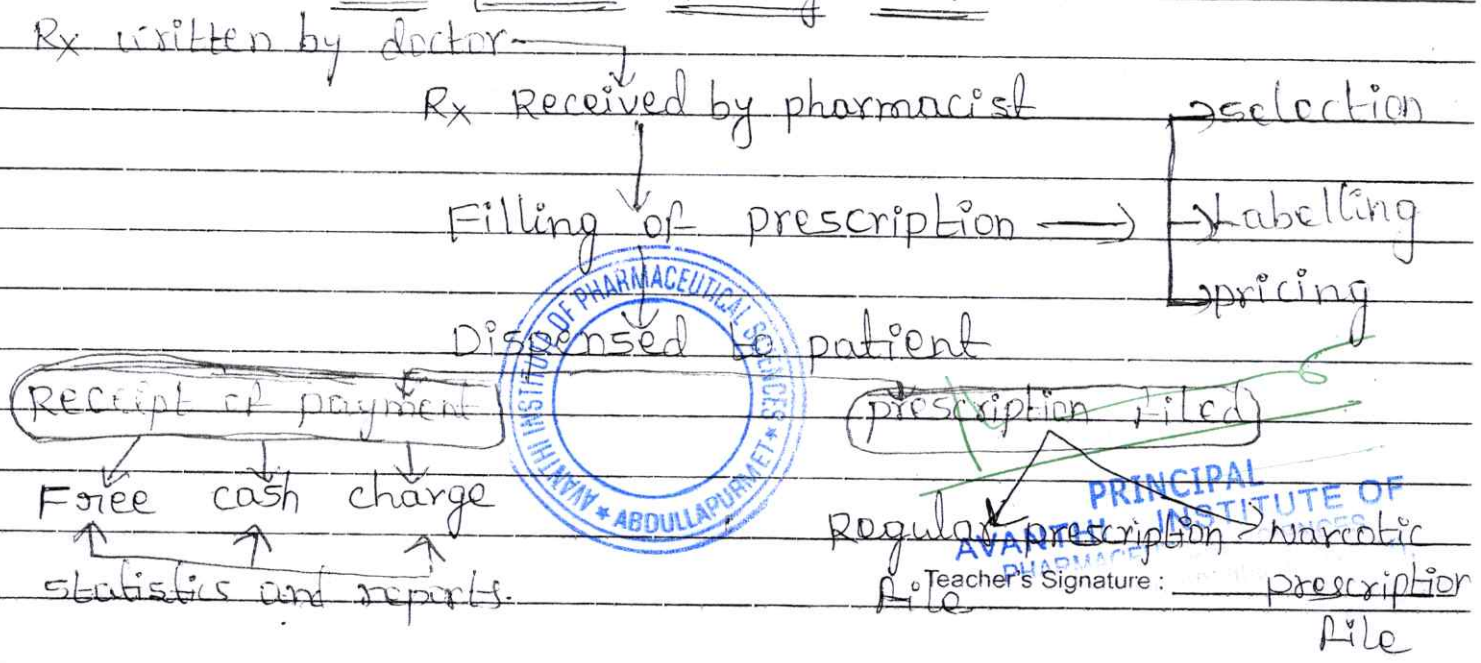 Rx written by doctor
Rx Received by pharmacist
selection
Filling of prescription
Labelling
pricing
Dispensed to patient
Receipt of payment
prescription Filed
Free cash charge
Regular prescription
File
Narcotic
prescription
File
statistics and reports.
AVANTHI INSTITUTE OF PHARMACEUTICAL SCIENCES * ABDULLAPURMET *
PRINCIPAL
AVANTHI INSTITUTE OF
PHARMACEUTICAL SCIENCES
Teacher's Signature :